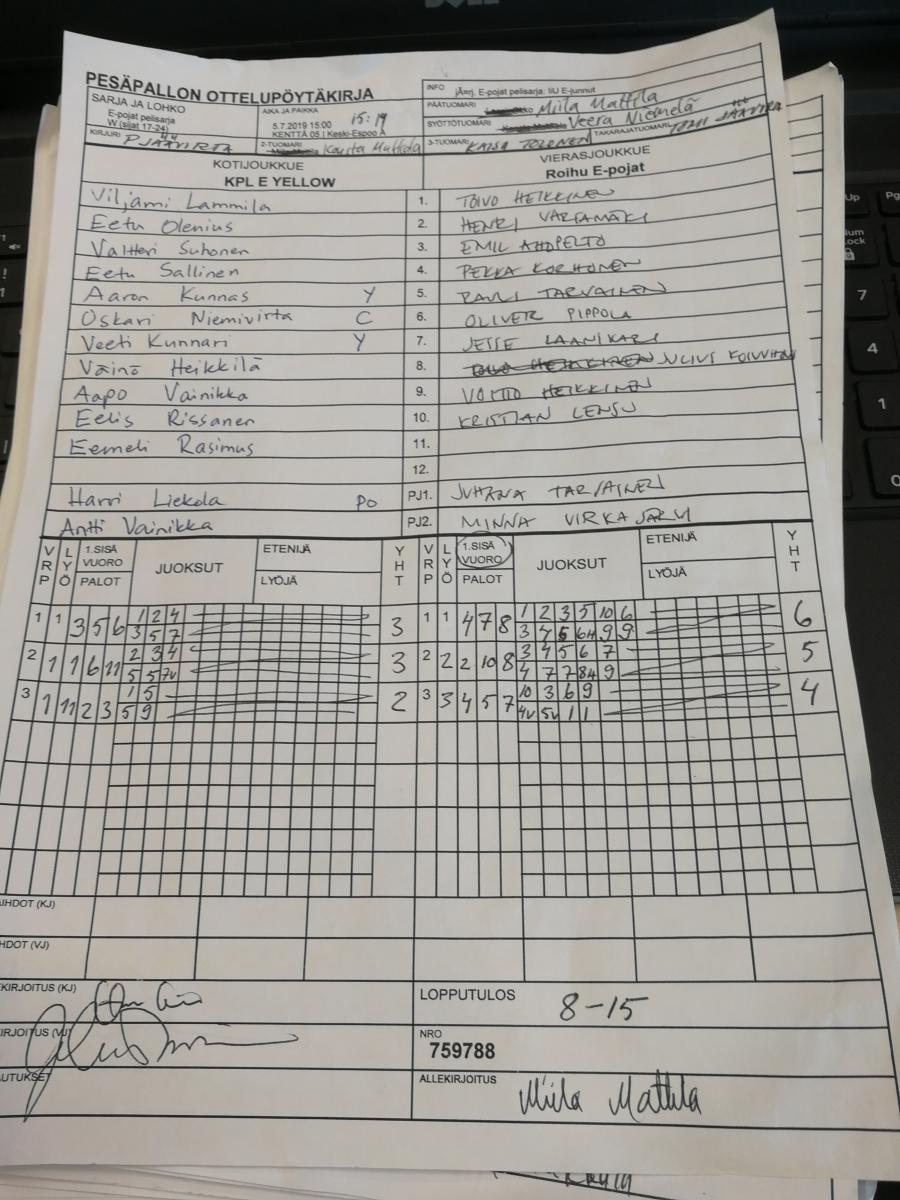 DELL
PESÄPALLON OTTELUPÖYTÄKIRJA
SARJA JA LOHKO
E-pojat pelisarja
W (sijat 17-24)
AIKA JA PAIKKA 15:19
5.7.2019 15:00
KENTTÄ 05 | Keski-Espoo A
INFO jÄ=rj. E-pojat pelisarja: IiU E-junnut
PÄÄTUOMARI Miila Mattila
SYÖTTÖTUOMARI Veera Niemelä
KIRJURI P JÄÄVIRTA
2-TUOMARI Kousta Mattola
3-TUOMARI KAISA TOLONEN
TAKARAJATUOMARI TOMI JÄÄVIRTA
KOTIJOUKKUE
KPL E YELLOW
VIERASJOUKKUE
Roihu E-pojat
Viljami Lammila 1. TOIVO HEIKKINEN
Eetu Olenius 2. HENRI VARTAMÄKI
Valtteri Suhonen 3. EMIL AHOPELTO
Eetu Sallinen 4. PEKKA KORHONEN
Aaron Kunnas Y 5. PAULI TARVAINEN
Oskari Niemivirta C 6. OLIVER PIPPOLA
Veeti Kunnari Y 7. JESSE LAANIKARI
Väinö Heikkilä 8. JULIUS
Aapo Vainikka 9. VOITTO HEIKKINEN
Eelis Rissanen 10. KRISTIAN LENSU
Eemeli Rasimus 11.
12.
Harri Liekola PO PJ1. JUHANA TARVAINEN
Antti Vainikka PJ2. MINNA VIRKAJÄRVI
VRP LYÖ 1.SISÄ VUORO PALOT JUOKSUT ETENIJÄ LYÖJÄ YHT VRP LYÖ 1.SISÄ VUORO PALOT JUOKSUT ETENIJÄ LYÖJÄ YHT
1 1 3 5 6 1 2 4 3 1 1 4 7 8 1 2 3 5 10 6 6
3 5 7 3 4 5 6H 9 9
2 1 1 6 11 2 3 4 3 2 2 2 10 8 3 4 5 6 7 5
5 5 7v 4 7 7 8H 9
3 1 11 2 3 1 5 2 3 3 4 5 7 10 3 6 9 4
5 9 4v 5v 1 1
IHDOT (KJ)
HDOT (VJ)
KIRJOITUS (KJ)
LOPPUTULOS 8-15
IRJOITUS (VJ)
NRO
759788
AUTUKSET
ALLEKIRJOITUS Miila Mattila